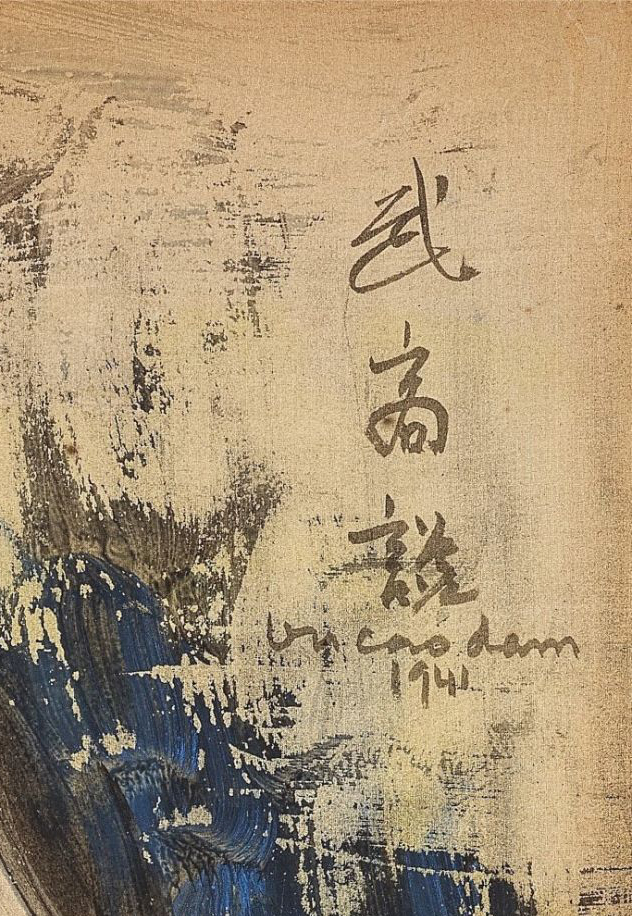 武高談
vu cao dam
1941